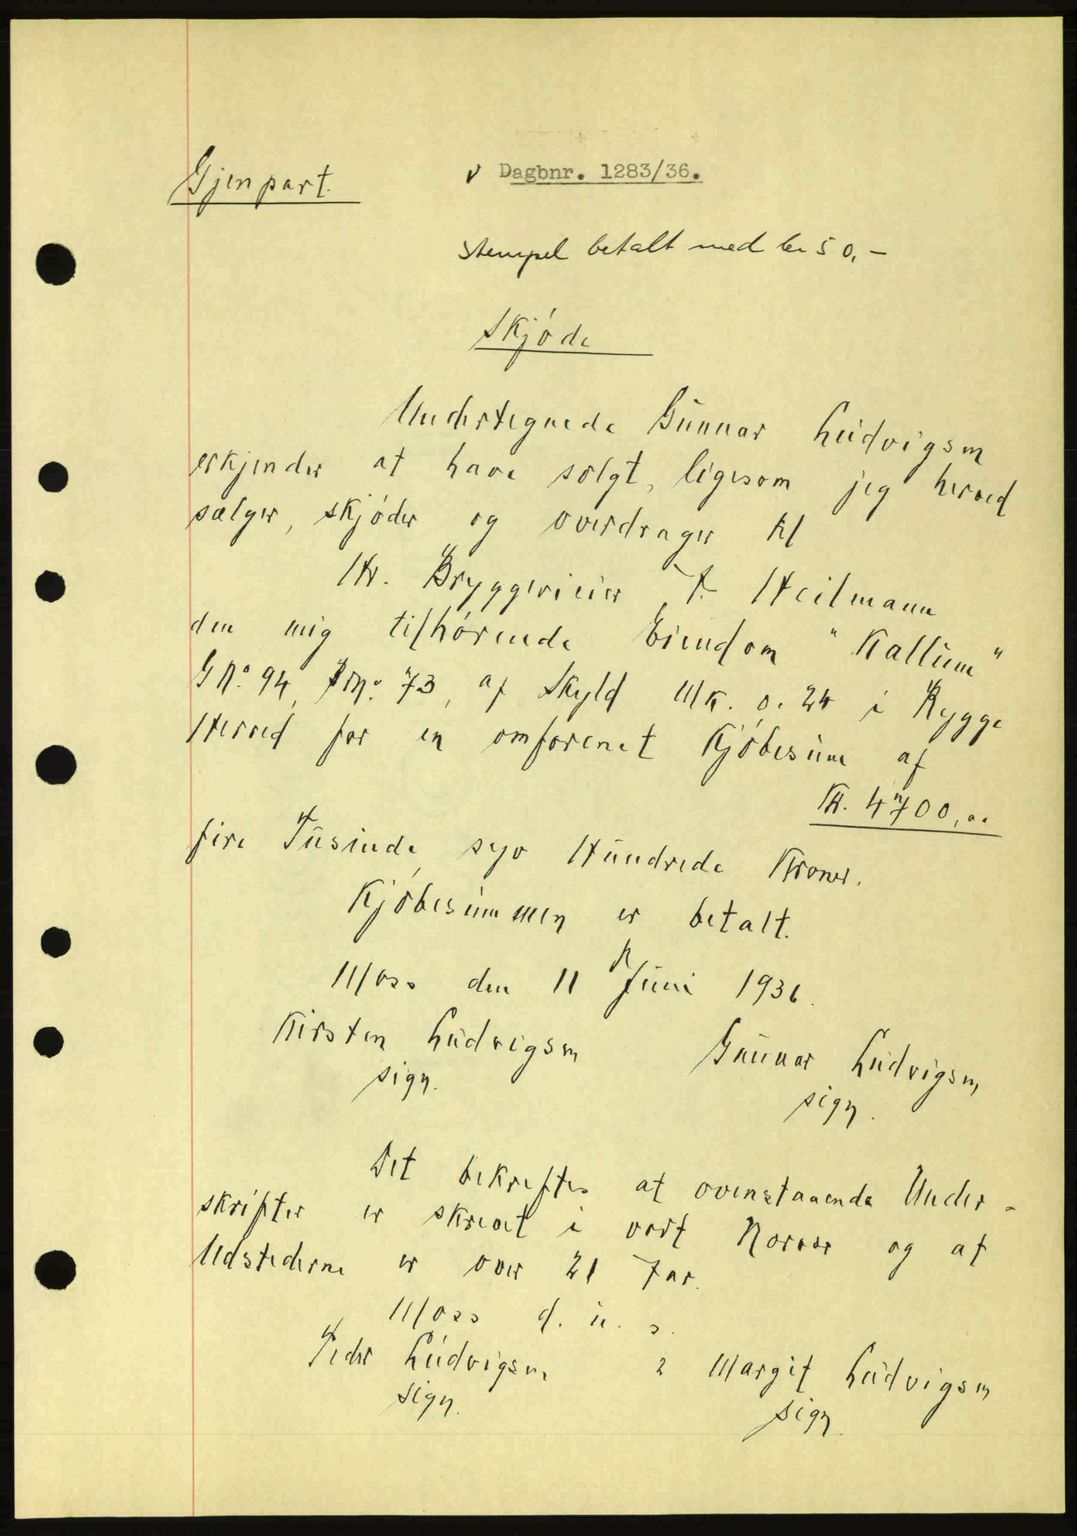 Gjenpart.
v Dagbnr. 1283/36.
stempel betalt med kr 50,-
Skjøde
Undertegnede Gunnar Ludvigsen
erkjender at have solgt, ligesom jeg herved
sælger, skjøder og overdrager til
Hr. Bryggerieier F. Heilmann
den mig tilhørende Eiendom "Kallum"
GNo. 94, BNo. 73, af Skyld Mk. 0.24 i Rygge
Herred for en omforenet Kjøbesum af
Kr. 4700,00
fire Tusinde syv Hundrede Kroner.
Kjøbesummen er betalt.
Moss den 11 Juni 1936.
Kirsten Ludvigsen Gunnar Ludvigsen
sign. sign.
Det bekreftes at ovenstaaende Under-
skrifter er skrevet i vort Nærvær og at
Udstederne er over 21 Aar.
Moss d. u. s.
Peder Ludvigsen Margit Ludvigsen
sign. sign.